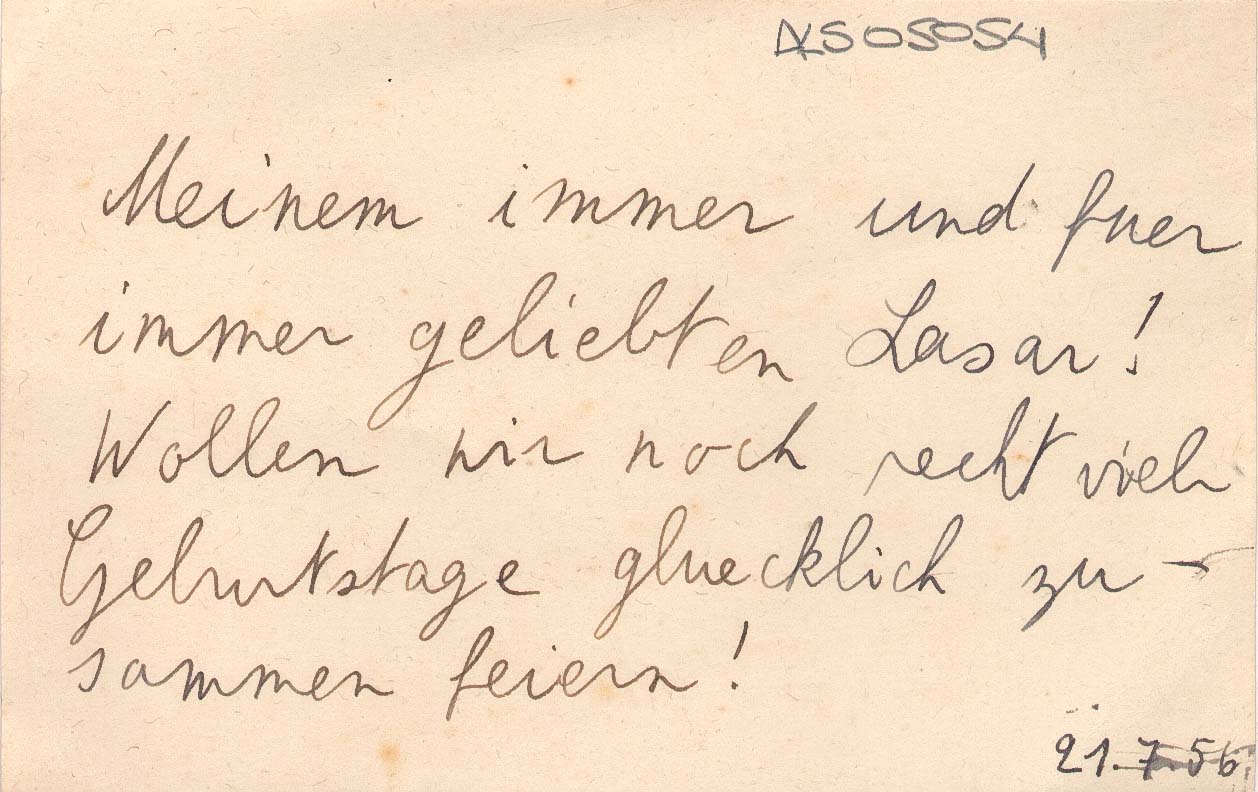 ALS 05054
Meinem immer und fuer
immer geliebten Lasar!
Wollen wir noch recht viele
Geburtstage gluecklich zu-
sammen feiern!
21.7.56.